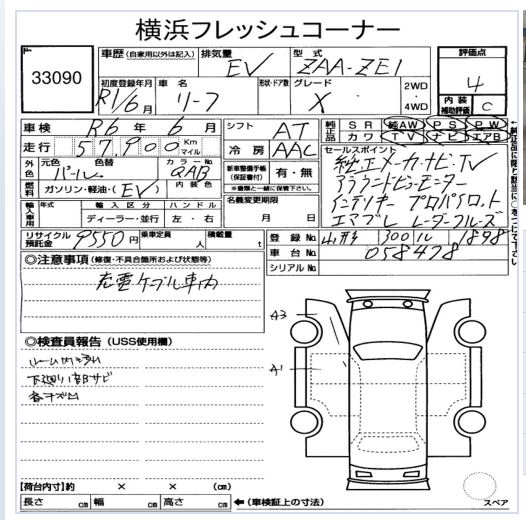 横浜フレッシュコーナー
33090
車歴 (自家用以外は記入) 排気量 EV 型式 ZAA-ZE1
評価点 4
初度登録年月 R1/6月 車名 リーフ 形状・ドア数 グレード X 2WD・4WD
内装補助評価 C
車検 R6年6月 シフト AT
純正品 SR 純AW PS PW
カワ TV ナビ エアB
走行 57,900 Km マイル 冷房 AAC
セールスポイント
純正メーカーナビ・TV
アラウンドビューモニター
インテリキー プロパイロット
エアブレ レーダークルーズ
外色 元色 パール 色替 カラーNo. QAB
新車整備手帳(保証書付) 有・無
※書類と一緒に保管下さい。
燃料 ガソリン・軽油・(EV) 内装色
名義変更期限 月 日
輸入車用 年式 輸入区分 ハンドル
ディーラー・並行 左・右
リサイクル預託金 9550円 乗車定員 人 積載量 t
登録No. 山形 300 ル 1898
車台No. 058478
シリアルNo.
◎注意事項 (修復・不具合箇所および状態等)
充電ケーブル車内
◎検査員報告 (USS使用欄)
ルーム内汚れ
下廻り1部サビ
A3
A1
【荷台内寸】約 × × (cm)
長さ cm 幅 cm 高さ cm ←(車検証上の寸法)
スペア